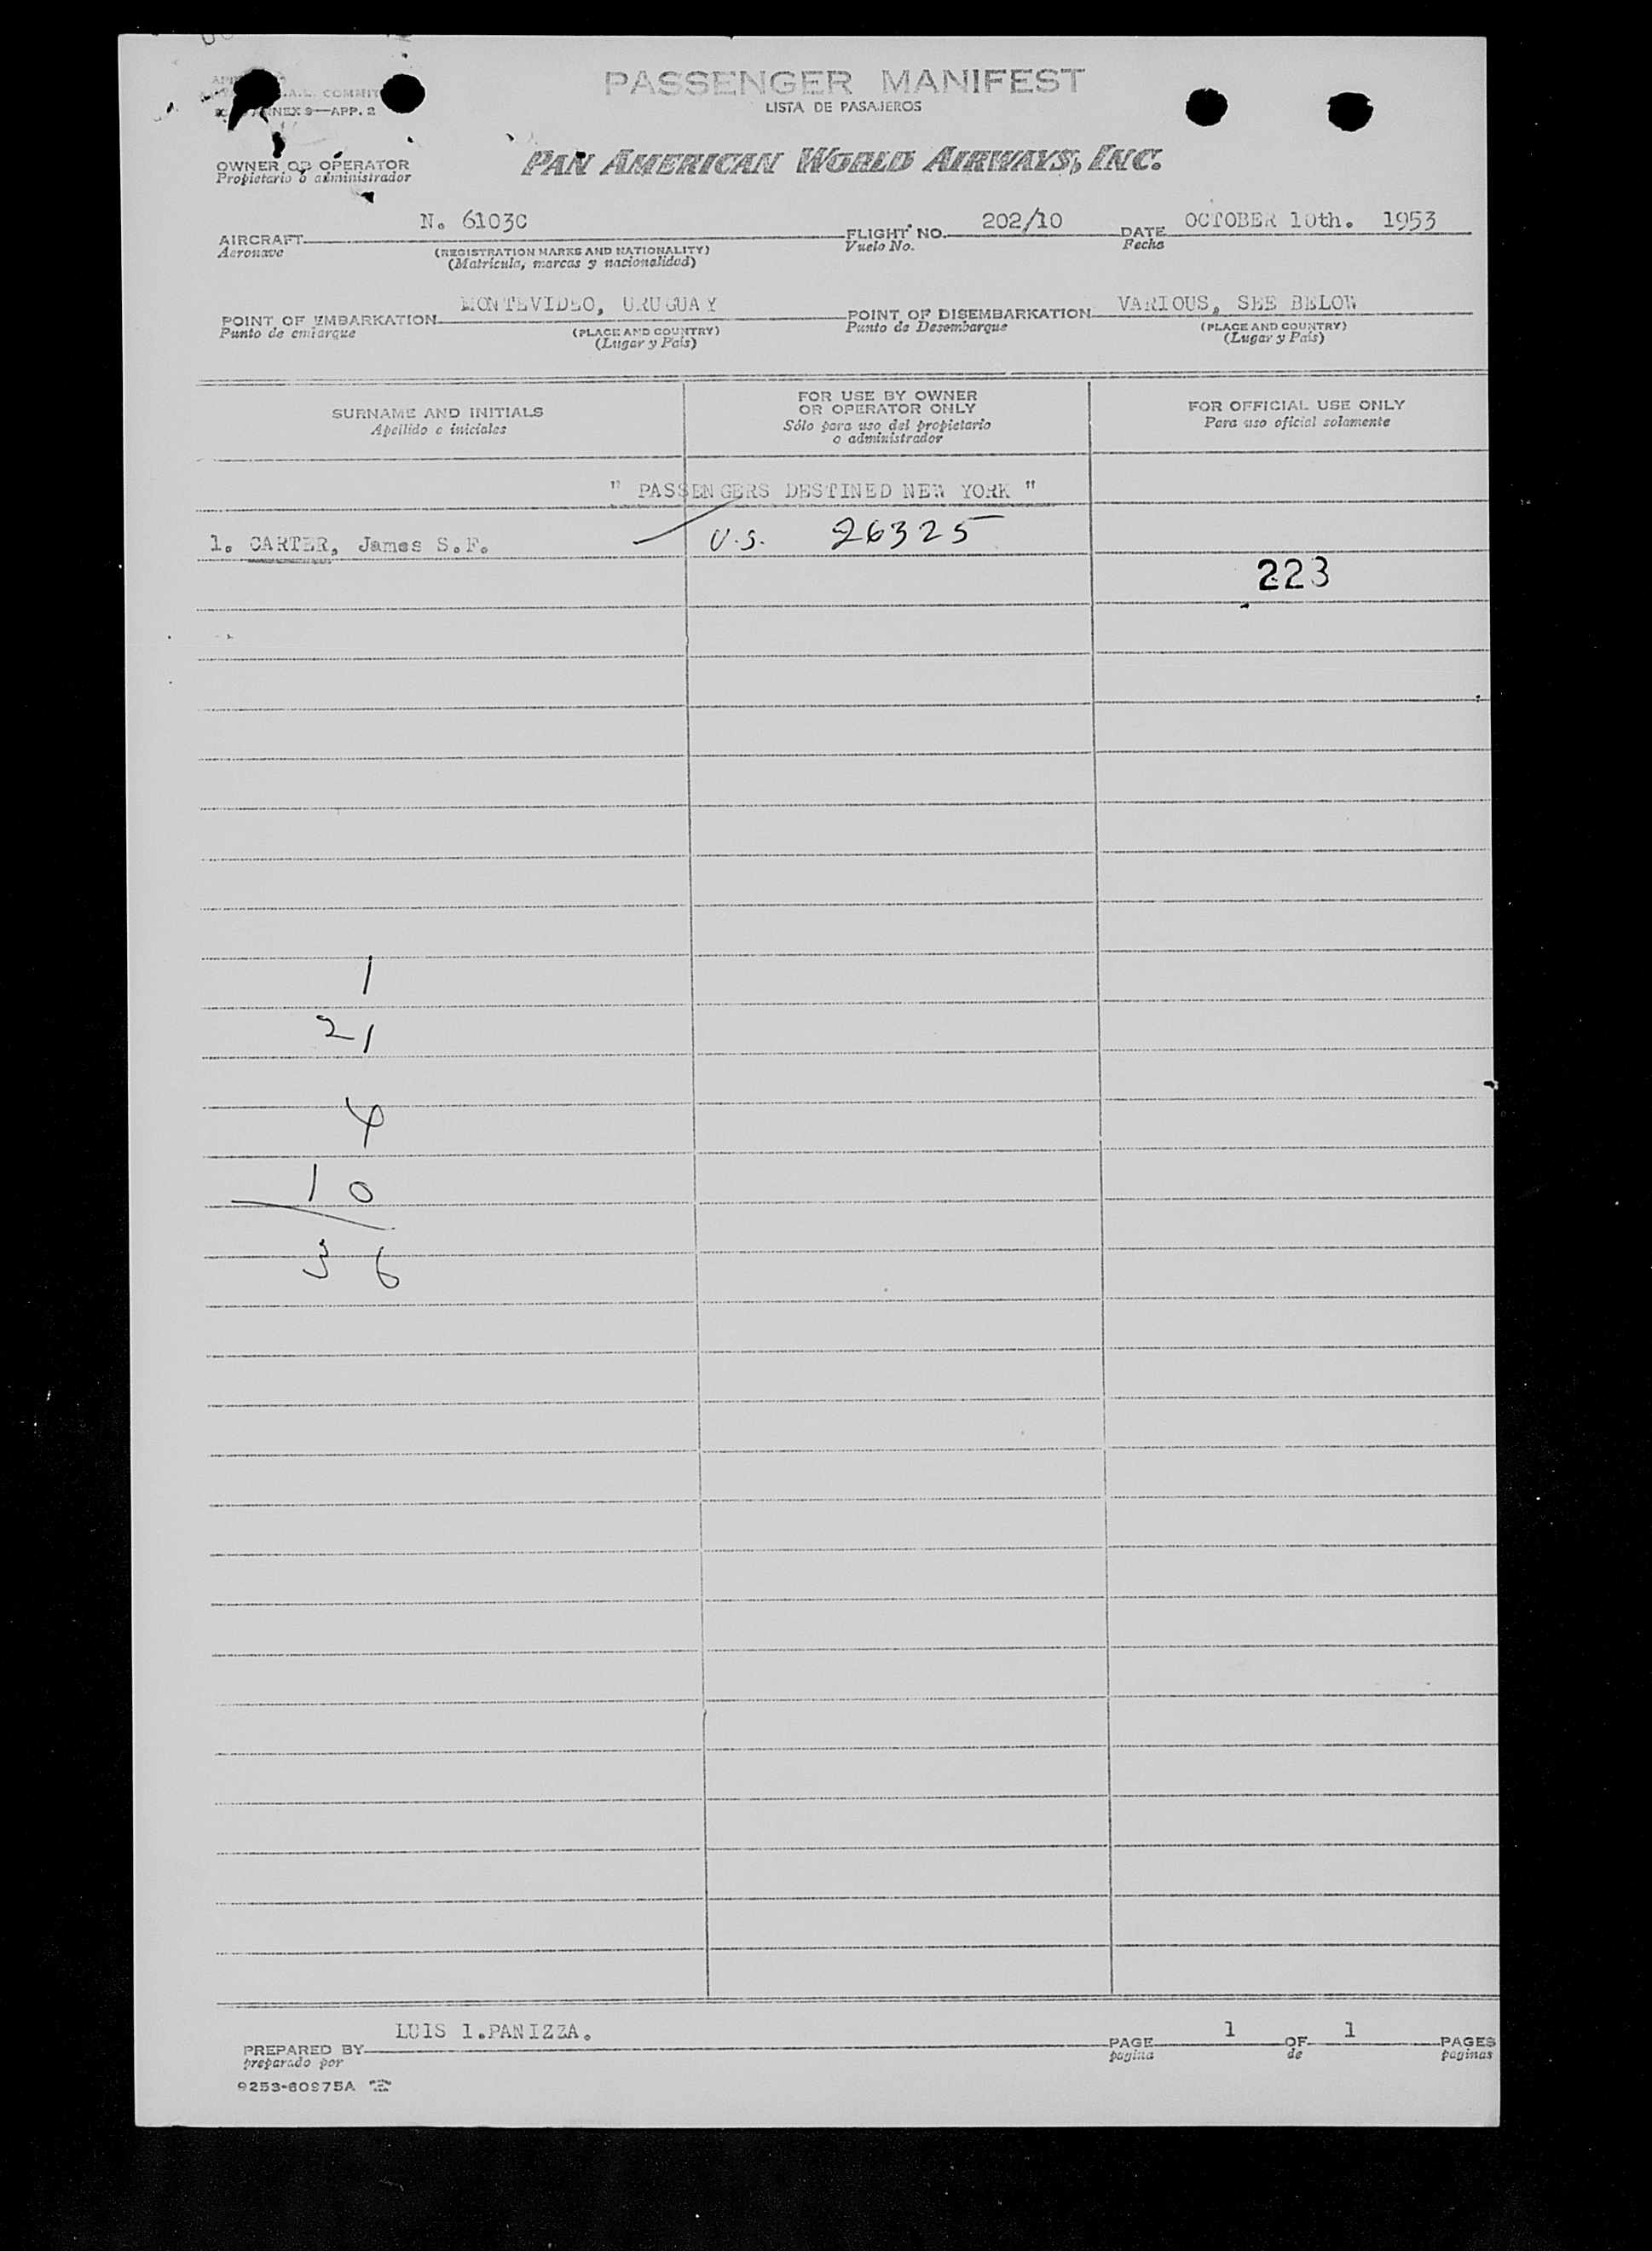 PASSENGER MANIFEST
LISTA DE PASAJEROS
A.L. COMMIT
ANNEX 9—APP. 2
OWNER OR OPERATOR
Propietario o administrador
PAN AMERICAN WORLD AIRWAYS, INC.
AIRCRAFT N. 6103C FLIGHT NO. 202/10 DATE OCTOBER 10th. 1953
Aeronave (REGISTRATION MARKS AND NATIONALITY) Vuelo No. Fecha
(Matrícula, marcas y nacionalidad)
POINT OF EMBARKATION MONTEVIDEO, URUGUAY POINT OF DISEMBARKATION VARIOUS, SEE BELOW
Punto de embarque (PLACE AND COUNTRY) Punto de Desembarque (PLACE AND COUNTRY)
(Lugar y País) (Lugar y País)
SURNAME AND INITIALS
Apellido e iniciales
FOR USE BY OWNER
OR OPERATOR ONLY
Sólo para uso del propietario
o administrador
FOR OFFICIAL USE ONLY
Para uso oficial solamente
" PASSENGERS DESTINED NEW YORK "
1. CARTER, James S.F. U.S. 26325
223
1
21
4
10
36
PREPARED BY LUIS 1.PANIZZA. PAGE 1 OF 1 PAGES
preparado por pagina de paginas
9253-60975A